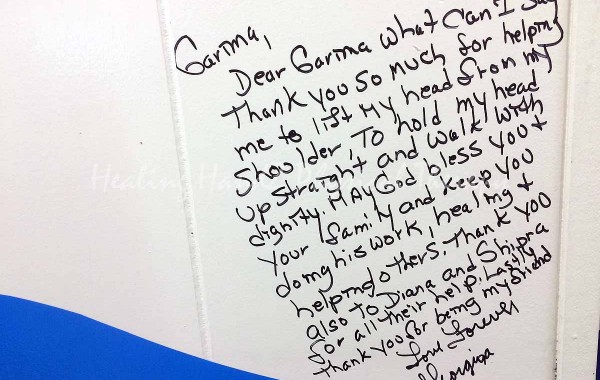 Garima,
Dear Garima what can I say
Thank you so much for helping
me to lift my head from my
shoulder, To hold my head
up straight and walk with
dignity. MAY God bless you +
your family and keep you
doing his work, healing +
helping others. Thank you
also to Diana and Shipra
for all their help. Lastly
thank you for being my friend
Love forever
Georgina